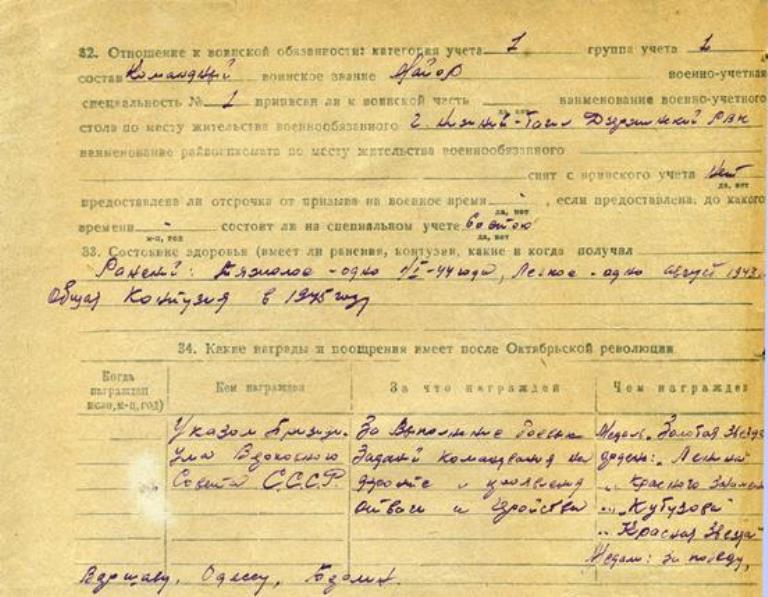 32. Отношение к воинской обязанности: категория учета 1 группа учета 1
состав Командный воинское звание Майор военно-учетная
специальность № 1 приписан ли к воинской части да, нет наименование военно-учетного
стола по месту жительства военнообязанного г. Нижний-Тагил Дзержинский РВК
наименование райвоенкомата по месту жительства военнообязанного
снят с воинского учета Нет
да, нет
предоставлена ли отсрочка от призыва на военное время - , если предоставлена, до какого
да, нет
времени - состоит ли на специальном учете Состою
м-ц, год да, нет
33. Состояние здоровья (имеет ли ранения, контузии, какие и когда получил
Ранений: Тяжолое - одно I-44 года, Легкое - одно август 1943
Общая Контузия в 1945 году
34. Какие награды и поощрения имеет после Октябрьской революции
Когда награжден число, м-ц, год) Кем награжден За что награждения Чем награжден
Указом Президи- За Выполнение боевых Медаль „Золотая Звезда
ума Верховного Заданий командования на ордена: „Ленина"
Совета С.С.С.Р. фронте и проявления „Красного Знамени
отваги и геройства „Кутузова"
„Красная Звезда"
Медали: За победу,
Варшаву, Одессу, Берлин.